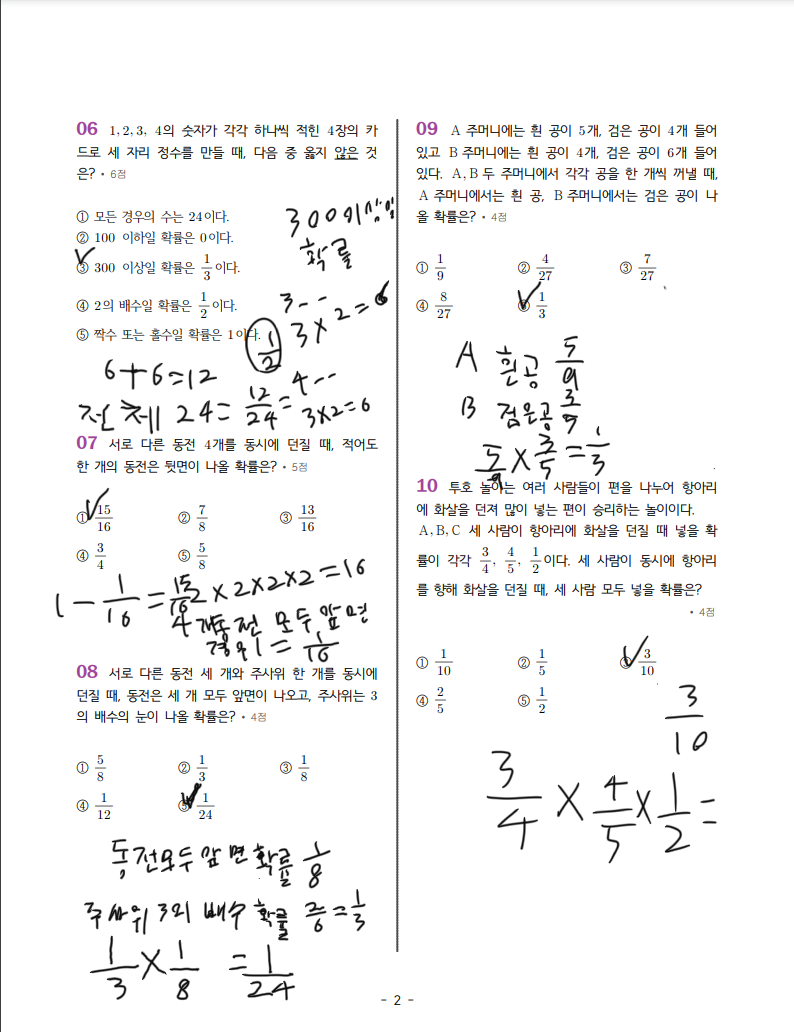 06 1, 2, 3, 4의 숫자가 각각 하나씩 적힌 4장의 카
드로 세 자리 정수를 만들 때, 다음 중 옳지 않은 것
은? • 6점
① 모든 경우의 수는 24이다.
② 100 이하일 확률은 0이다.
③ 300 이상일 확률은 1/3이다.
④ 2의 배수일 확률은 1/2이다.
⑤ 짝수 또는 홀수일 확률은 1이다.
300이상일
확률
3--
3×2=6
1/2
6+6=12
4--
전체 24= 12/24=
3×2=6
07 서로 다른 동전 4개를 동시에 던질 때, 적어도
한 개의 동전은 뒷면이 나올 확률은? • 5점
① 15/16 ② 7/8 ③ 13/16
④ 3/4 ⑤ 5/8
1-1/16=15/16
2×2×2×2=16
4개동전 모두 앞면
경우1=1/16
08 서로 다른 동전 세 개와 주사위 한 개를 동시에
던질 때, 동전은 세 개 모두 앞면이 나오고, 주사위는 3
의 배수의 눈이 나올 확률은? • 4점
① 5/8 ② 1/3 ③ 1/8
④ 1/12 ⑤ 1/24
동전모두 앞면 확률 1/8
주사위 3의 배수 확률 2/6=1/3
1/3×1/8 =1/24
09 A 주머니에는 흰 공이 5개, 검은 공이 4개 들어
있고 B 주머니에는 흰 공이 4개, 검은 공이 6개 들어
있다. A, B 두 주머니에서 각각 공을 한 개씩 꺼낼 때,
A 주머니에서는 흰 공, B 주머니에서는 검은 공이 나
올 확률은? • 4점
① 1/9 ② 4/27 ③ 7/27
④ 8/27 ⑤ 1/3
A 흰공 5/9
B 검은공 3/5
5/9×3/5=1/3
10 투호 놀이는 여러 사람들이 편을 나누어 항아리
에 화살을 던져 많이 넣는 편이 승리하는 놀이이다.
A, B, C 세 사람이 항아리에 화살을 던질 때 넣을 확
률이 각각 3/4, 4/5, 1/2이다. 세 사람이 동시에 항아리
를 향해 화살을 던질 때, 세 사람 모두 넣을 확률은?
• 4점
① 1/10 ② 1/5 ③ 3/10
④ 2/5 ⑤ 1/2
3/10
3/4×4/5×1/2=
- 2 -